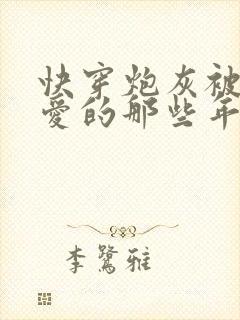 快穿炮灰被
爱的那些年
李鹭雅